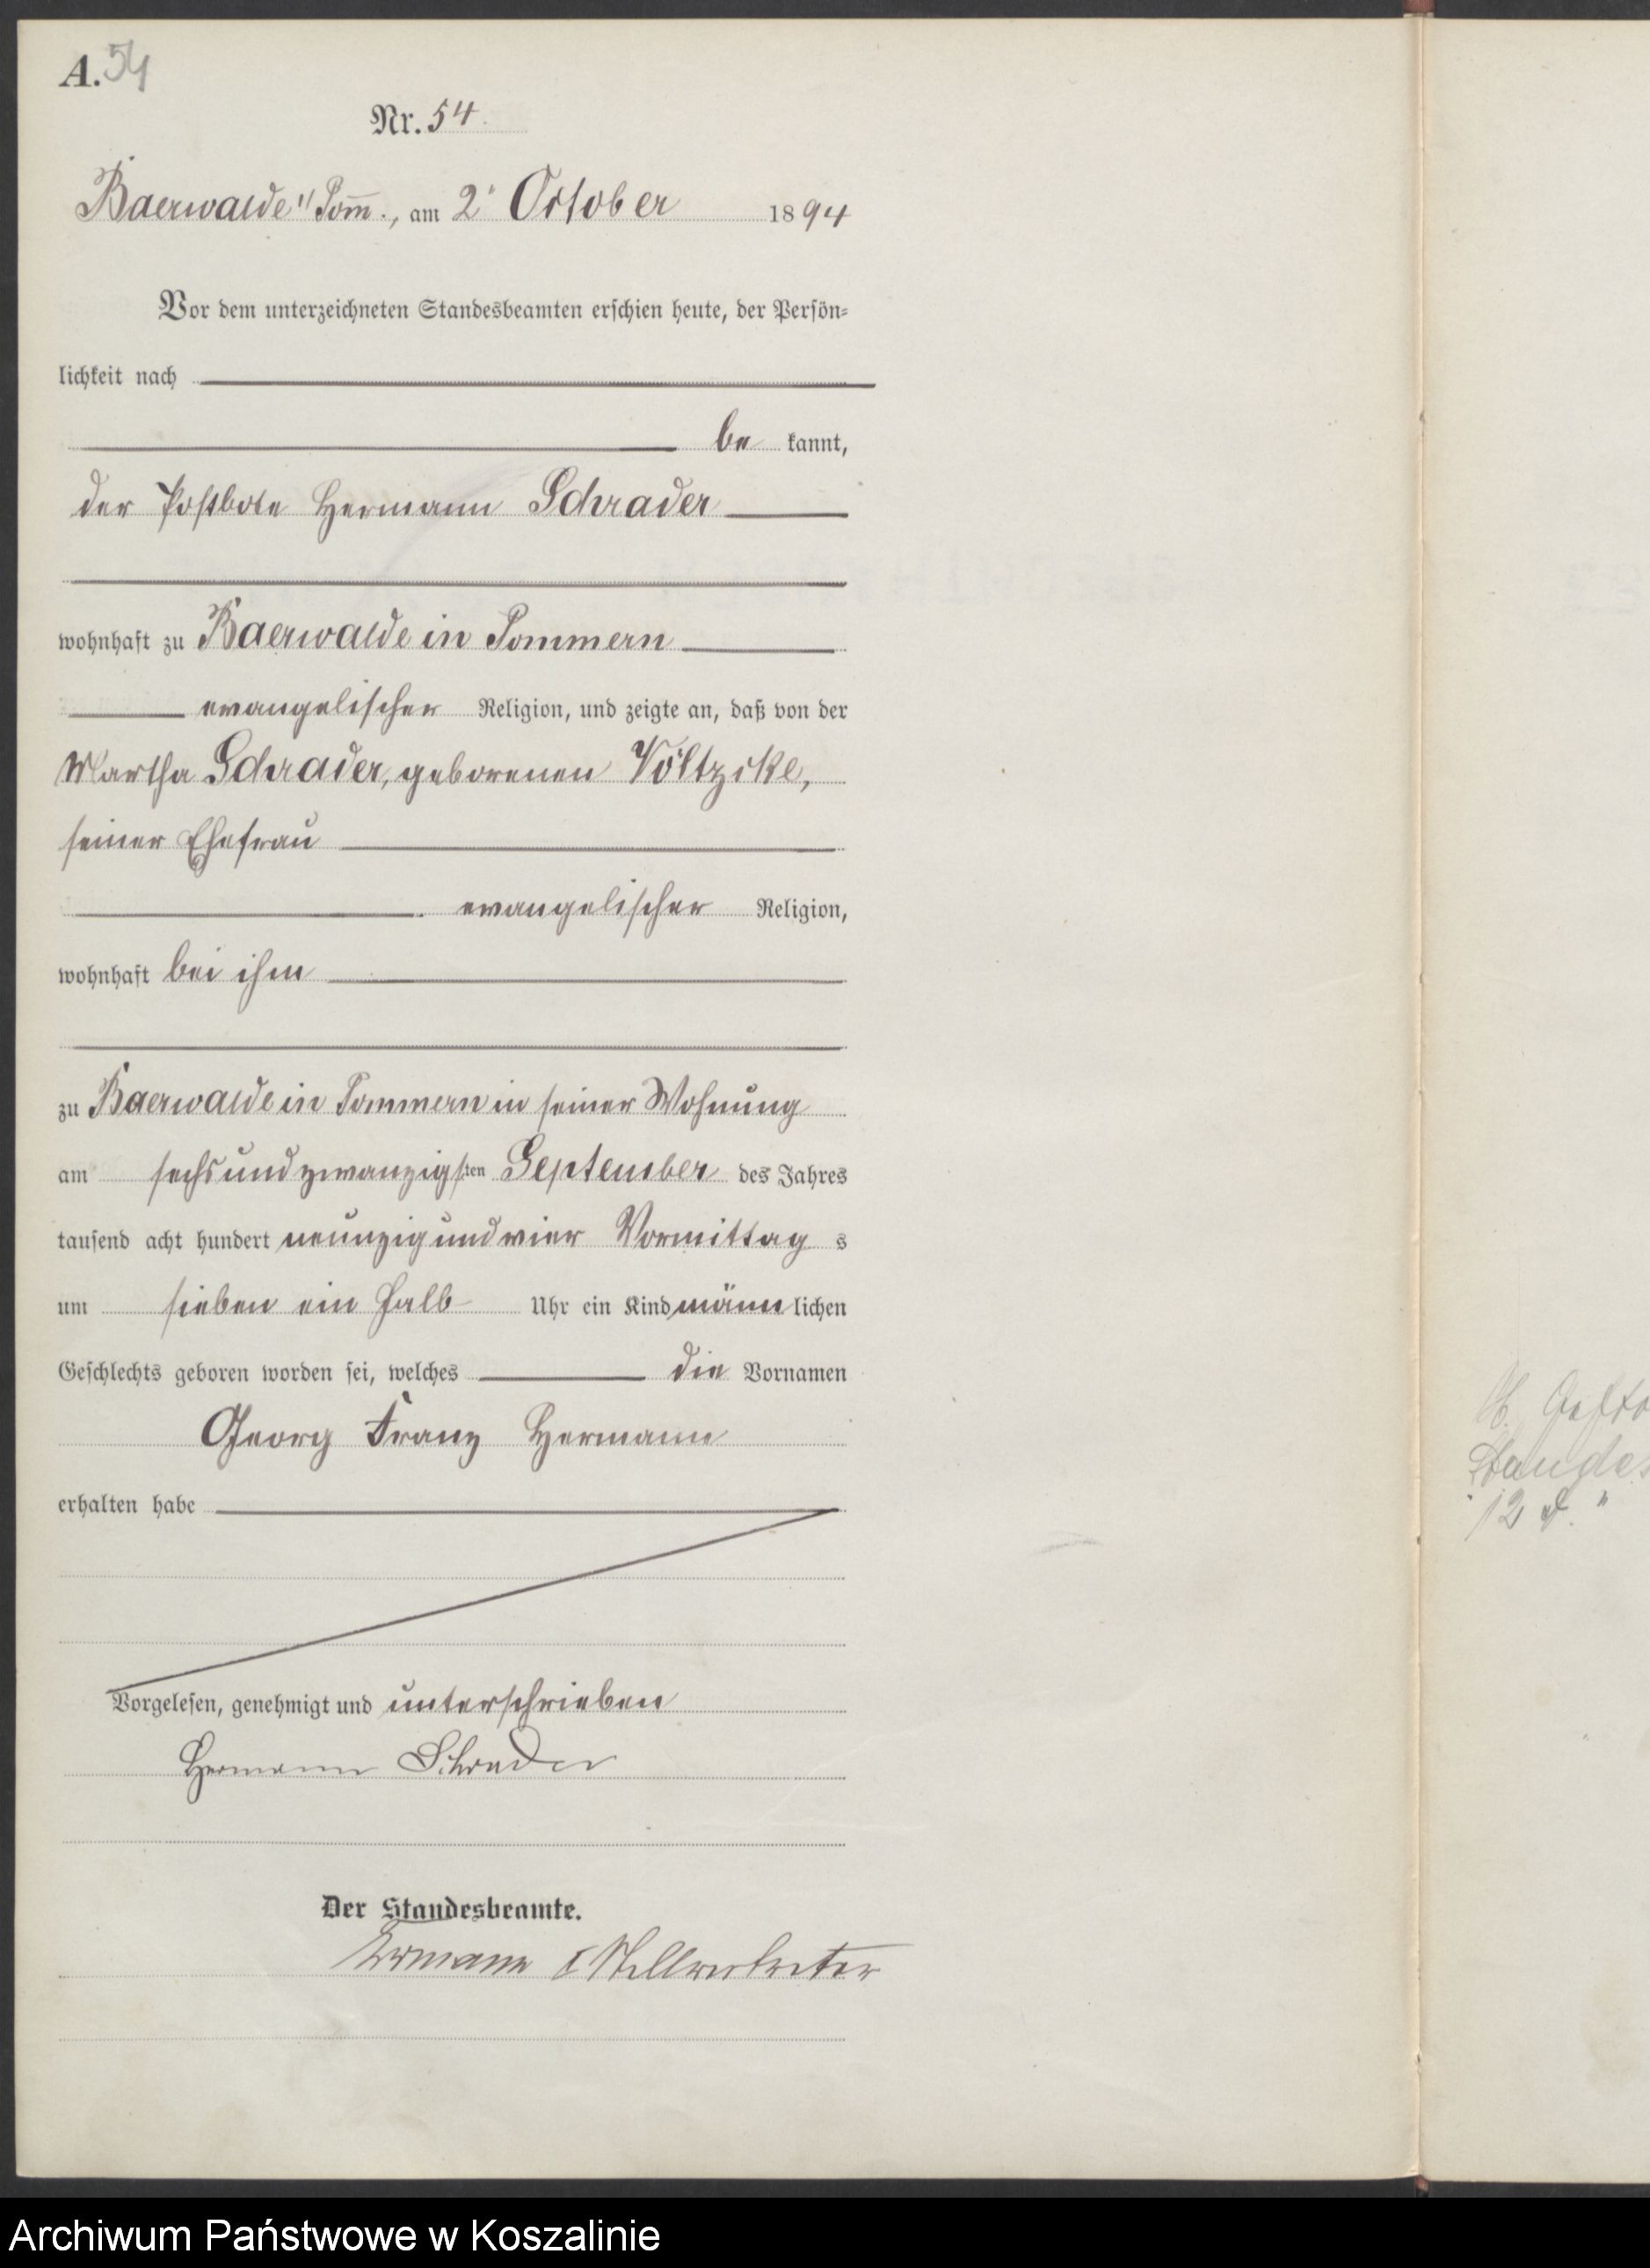 A. 54
Nr. 54.
Baerwalde i/ Pom̄., am 2. October 1894
Vor dem unterzeichneten Standesbeamten erschien heute, der Persön-
lichkeit nach
be kannt,
der Postbote Hermann Schrader
wohnhaft zu Baerwalde in Pommern
evangelischer Religion, und zeigte an, daß von der
Martha Schrader, geborenen Völtzcke,
seiner Ehefrau
evangelischer Religion,
wohnhaft bei ihm
zu Baerwalde in Pommern in seiner Wohnung
am sechsundzwanzigsten September des Jahres
tausend acht hundert neunzig und vier Vormittag s
um sieben ein halb Uhr ein Kind männ lichen
Geschlechts geboren worden sei, welches die Vornamen
Georg Franz Hermann
erhalten habe
Vorgelesen, genehmigt und unterschrieben
Hermann Schrader
Der Standesbeamte.
Stellvertreter
12
Archiwum Państwowe w Koszalinie